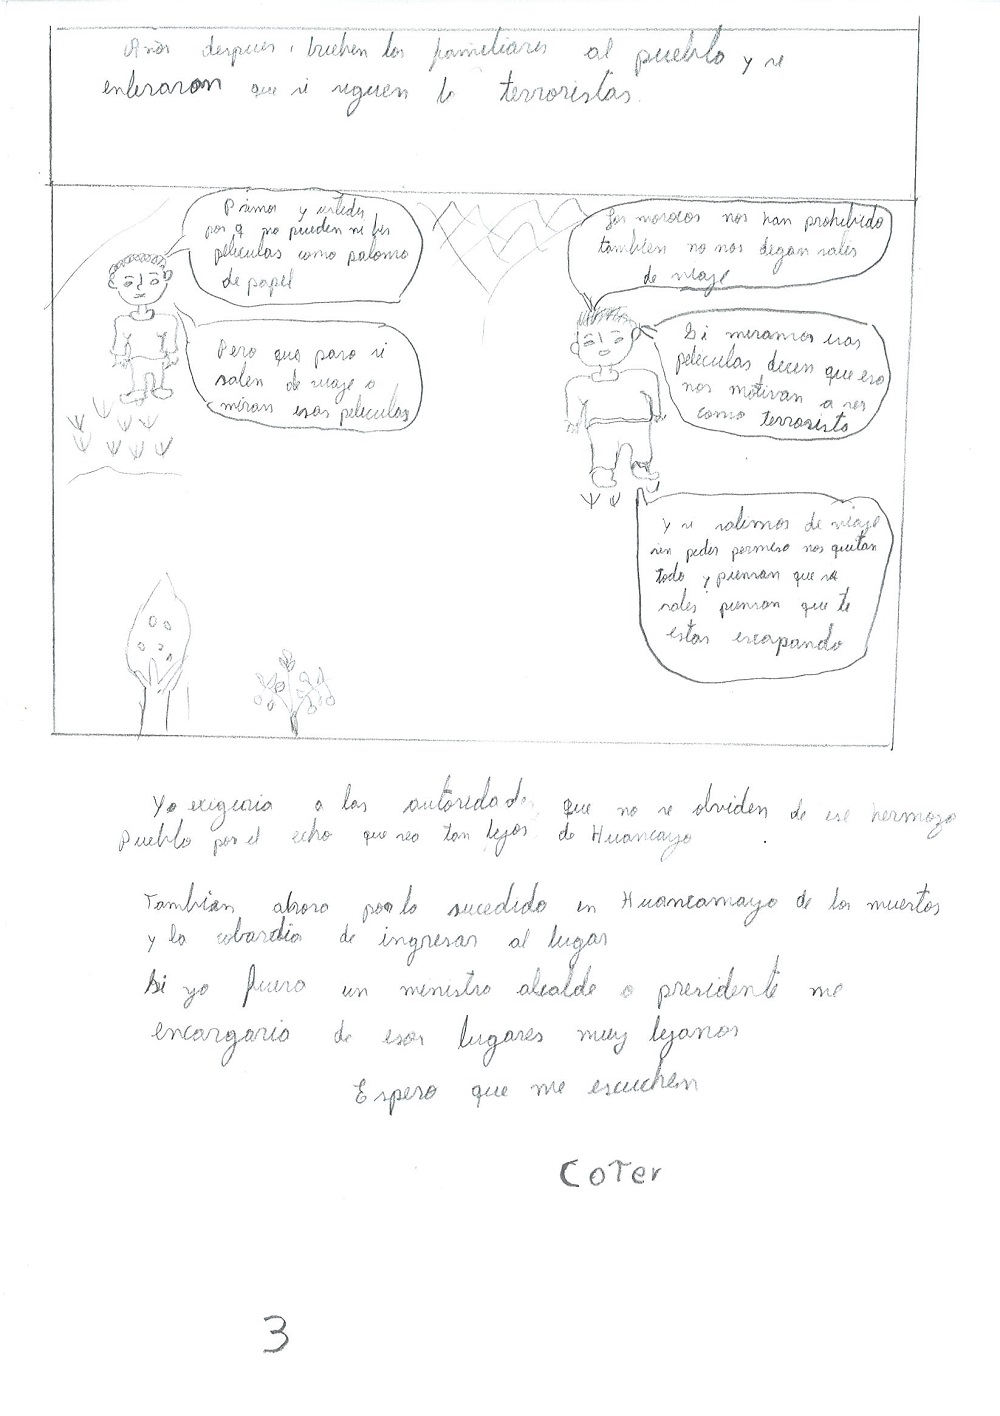 Años despues, buelven los familiares al pueblo y se
enteraron que si siguen lo terroristas.
Primos y ustedes
por q no pueden ni ber
peliculas como palomo
de papel
Pero que paso si
salen de viaje o
miran esas peliculas
Los morocos nos han prohibido
tambien no nos degan salir
de viaje
Si miramos esas
peleculas decen que eso
nos motivan a ser
como terroristo
y si salimos de viaje
sin peder permeso nos quitan
todo y piensan que se
sales piensan que te
estas escapando
Yo exigiria a las autoridades que no se olviden de ese hermozo
Pueblo por el echo que sea tan lejos de Huancayo
Tambien ahora por lo sucedido en Huancamayo de los muertos
y la cobardia de ingresar al lugar
Si yo fuera un ministro alcalde o presidente me
encargaria de esos lugares muy lejanos
Espero que me escuchen
COTer
3